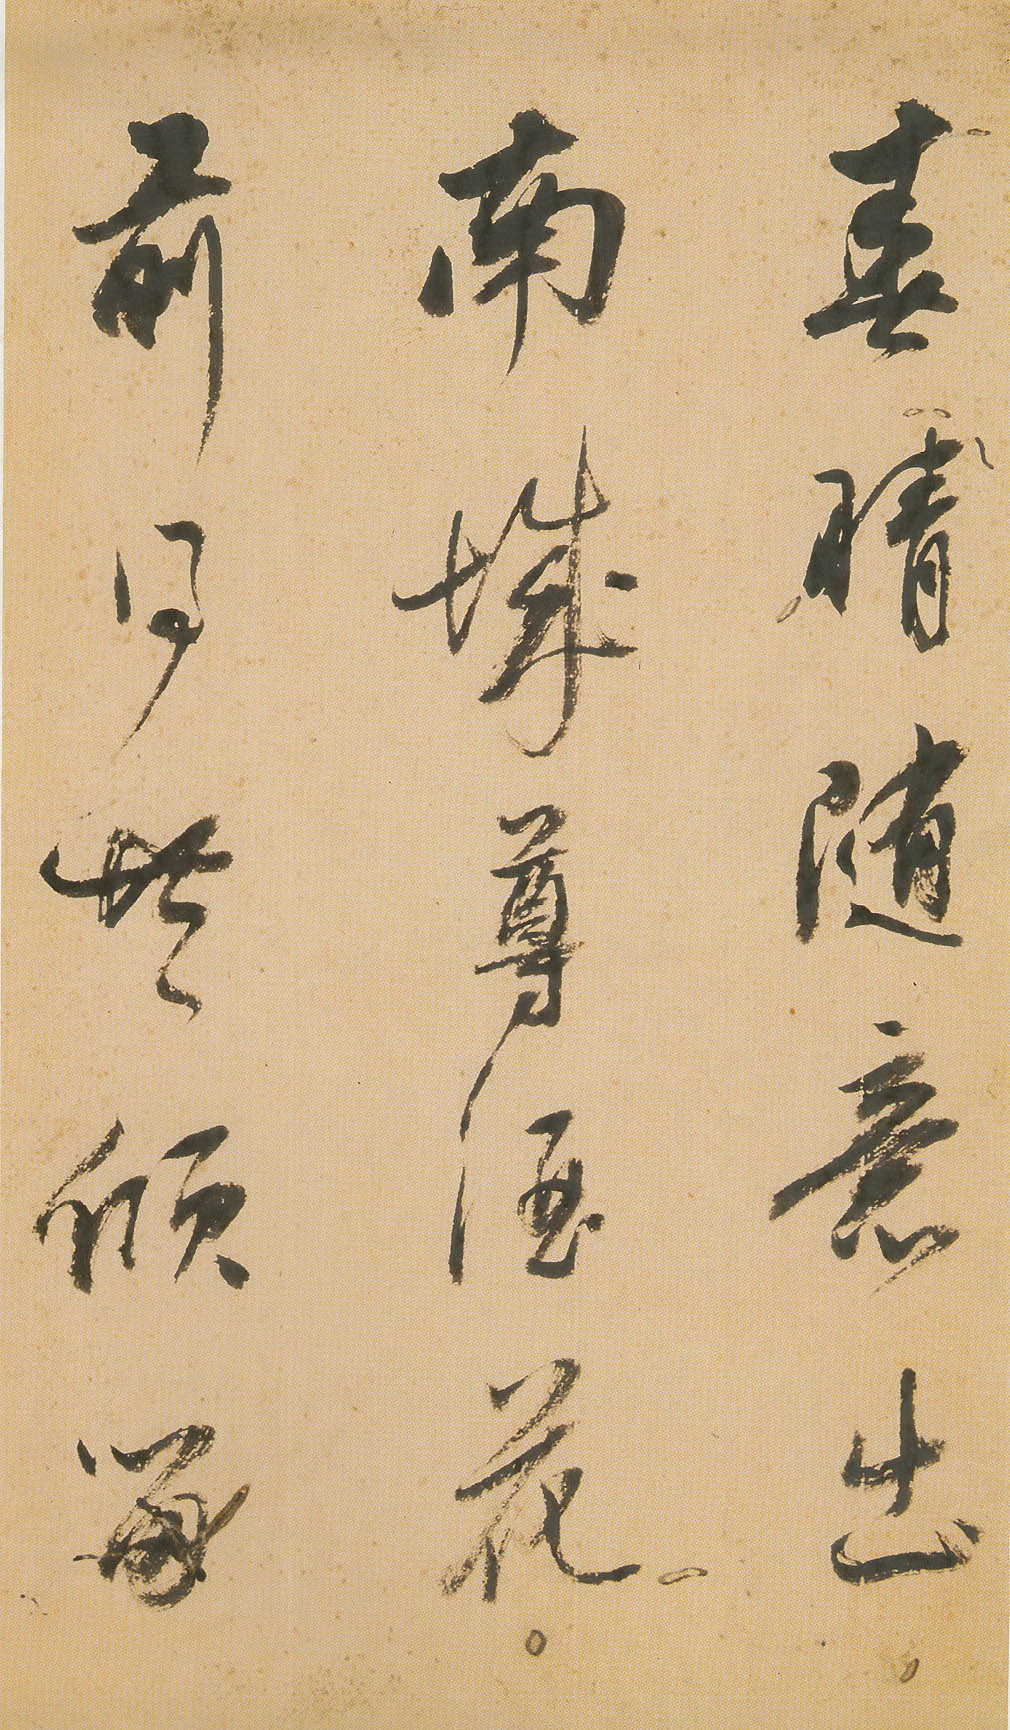 春晴随意出
南城尊酒花
前得共傾